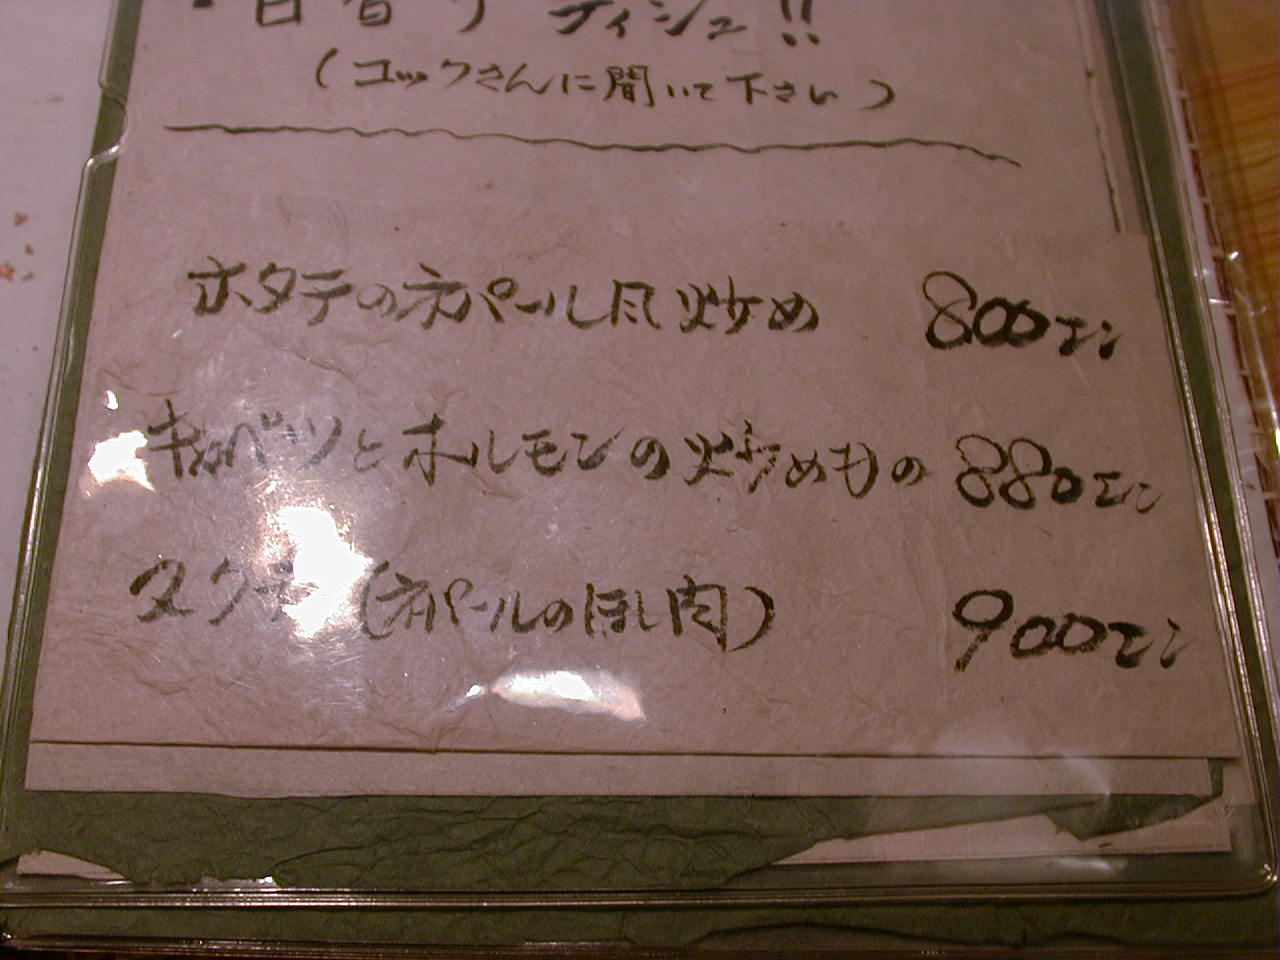 ・日替り ディシュ!!
(コックさんに聞いて下さい)
ホタテのネパール風炒め 800エン
キャベツとホルモンの炒めもの 880エン
(ネパールのほし肉) 900エン